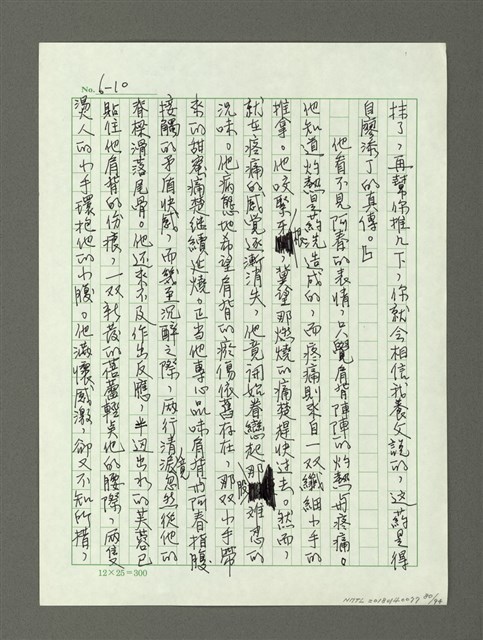 No. 6-10
抹了，再幫你推几下，你就会相信我養父說的，这葯是得
自廖添丁的真傳。」
他看不見阿春的表情，只覺肩背陣陣的灼熱与疼痛。
他知道灼熱是葯洗造成的，而疼痛則來自一双纖細小手的
推拿。他咬緊牙根，冀望那燃燒的痛楚趕快过去。然而，
就在疼痛的感覚逐漸消失，他竟開始眷戀起那股难忍的
況味。他病態地希望肩背的瘀傷依舊存在，那双小手帶
來的甜蜜痛楚继續延燒。正当他專心品味肩背与阿春指腹
接觸的矛盾快感，而幾至沉醉之際，竟兩行清淚忽然從他的
脊樑滑落尾骨。他还來不及作出反應，半边出水的芙蓉已
貼住他肩背的伤痕，一双新发的蓓蕾輕点他的腰際，兩隻
燙人的小手環抱他的小腹。他滿懷感激，卻又不知所措，
12×25=300
NMTL 20180140077 80/94